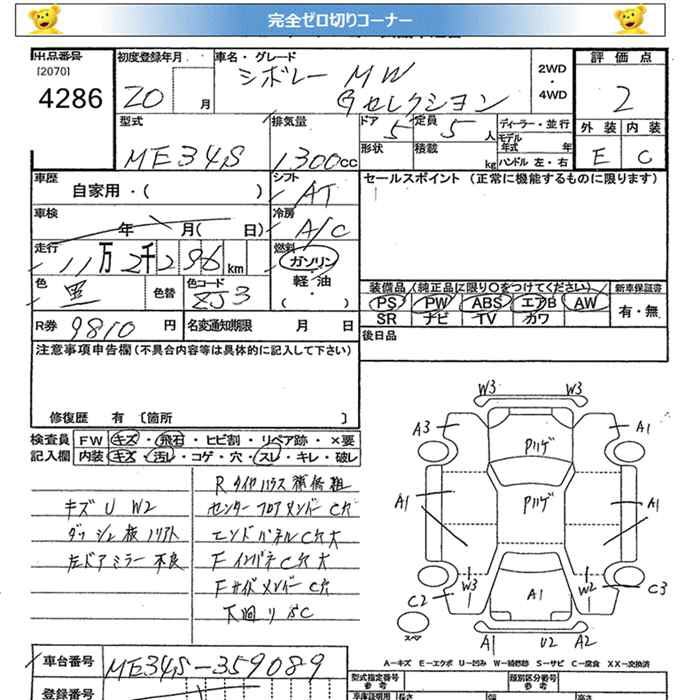 完全ゼロ切りコーナー
出品番号
[2070]
4286
初度登録年月
20 月
車名・グレード
シボレー MW
Gセレクション
2WD
・
4WD
評価点
2
外装 内装
E C
型式
ME34S
排気量
1300cc
ドア 5
定員 5人
形状
積載 kg
ディーラー・並行
モデル年式 年
ハンドル 左・右
車歴
自家用・( )
シフト
AT
車検
年 月( 日)
冷房
A/C
走行
11万2千296km
燃料
ガソリン
・
軽油
・
( )
色
黒
色替
色コード
ZJ3
R券 9810 円
名変通知期限 月 日
セールスポイント (正常に機能するものに限ります)
装備品(純正品に限り○をつけてください)
PS PW ABS エアB AW
SR ナビ TV カワ
新車保証書
有・無
後日品
注意事項申告欄(不具合内容等は具体的に記入して下さい)
修復歴 有 [箇所 ]
検査員
記入欄
FW キズ・飛石・ヒビ割・リペア跡・×要
内装 キズ・汚し・コゲ・穴・スレ・キレ・破レ
キズU W2
ダッシュ板ノリアト
左ドアミラー不良
Rタイヤハウス補修粗
センターフロアメンバーC穴
エンドパネルC穴大
FインパネC穴大
FサイドメンバーC穴
下廻りSC
W3 W3
A3 A1
Pハゲ
Pハゲ
A1 A1
W3 W2
C2 C3
A1
スペア
A1 U2 A2
A－キズ E－エクボ U－凹み W－補修跡 S－サビ C－腐食 XX－交換済
車台番号
ME34S-359089
登録番号
型式指定番号
参考
類別区分番号
参考
車庫証明用
参考
長さ
幅
高さ